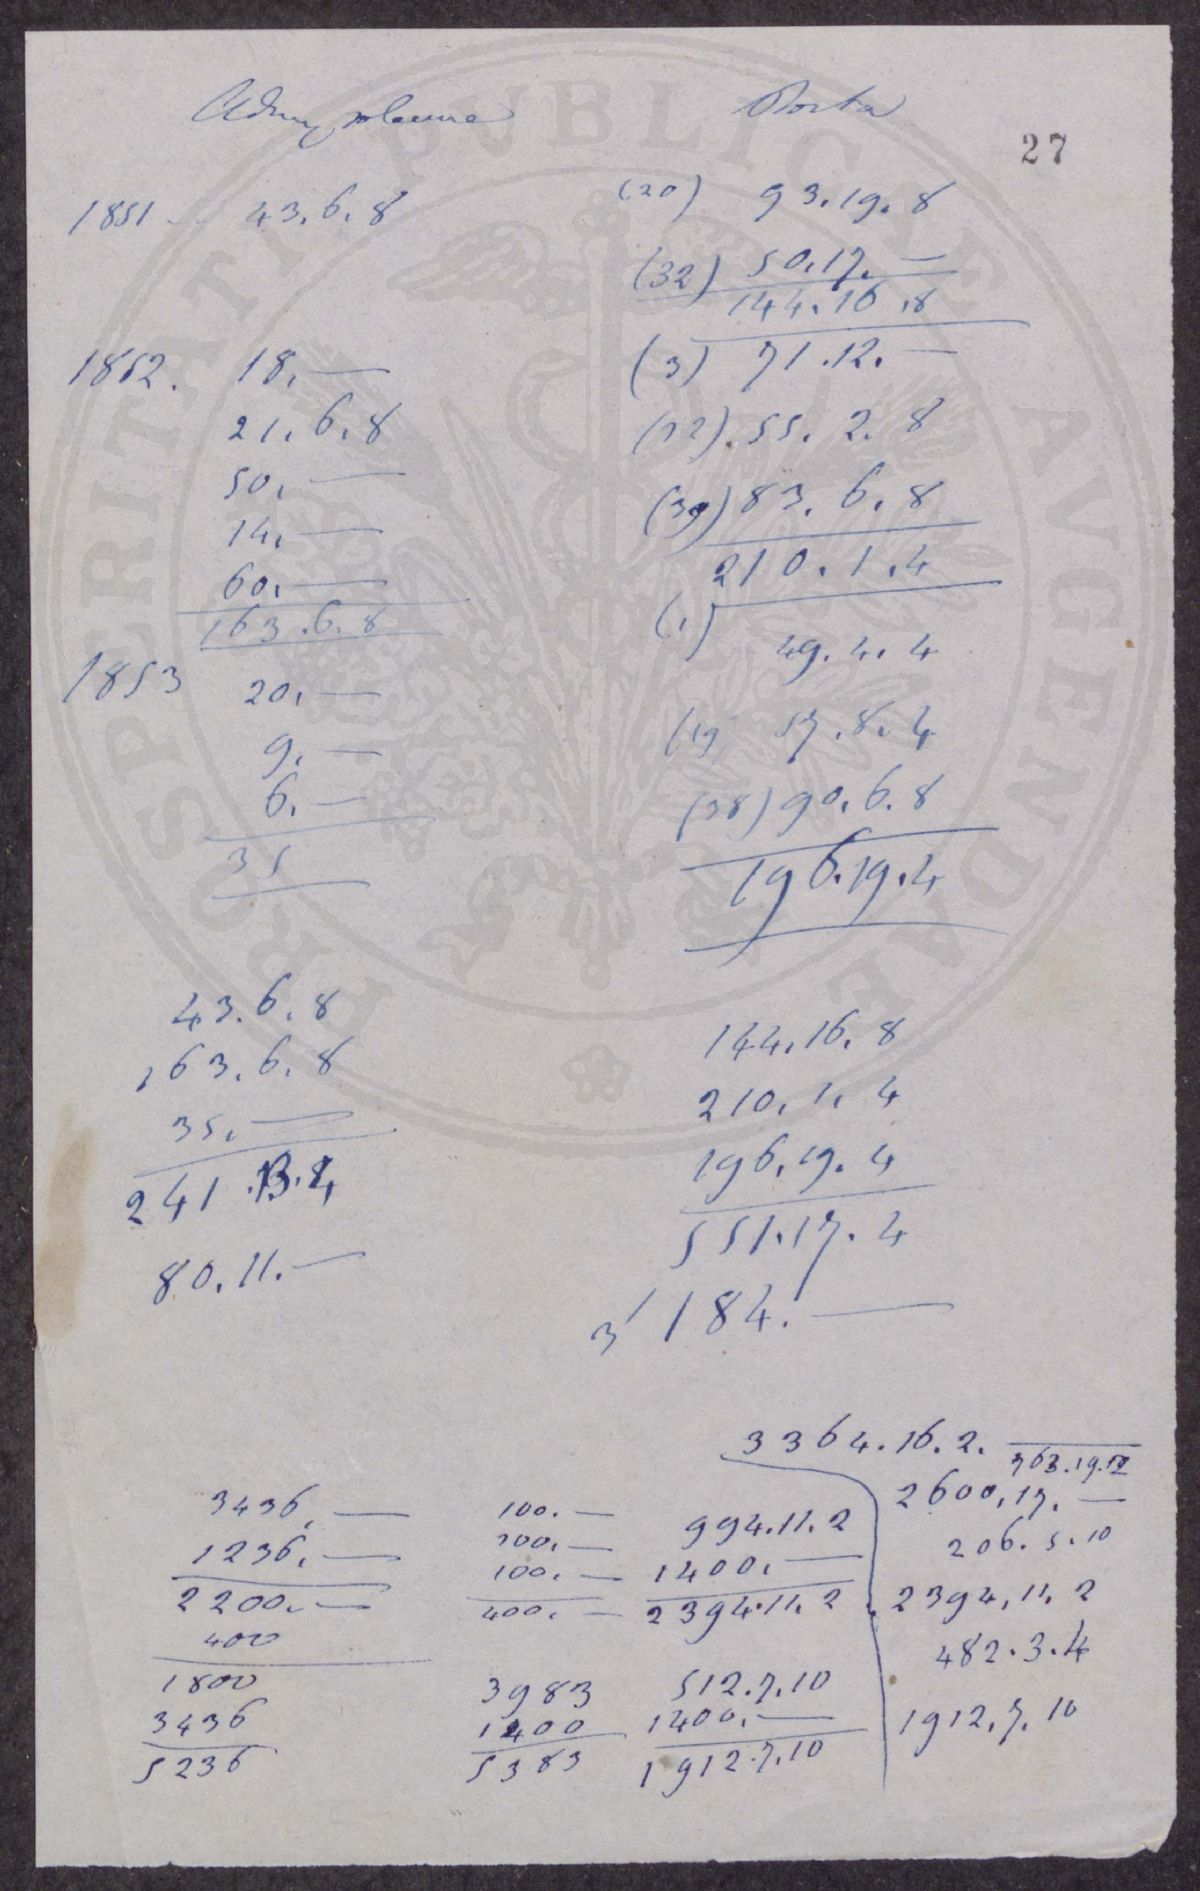 Porta
27
1851 — 43.6.8
(20) 93.19.8
(32) 50.17.—
144.16.8
1852. 18.—
(3) 71.12.—
21.6.8
(22). 55.2.8
50.—
(39) 83.6.8
14.—
210.1.4
60.—
163.6.8
(1) 49.4.4
1853 20.—
(19 57.8.4
9.—
(38) 90.6.8
6.—
35
196.19.4
43.6.8
163.6.8
35.—
241.13.4
80.11.—
144.16.8
210.1.4
196.19.4
551.17.4
3/184.—
3364.16.2.
2600.17.—
206.5.10
2394.11.2
482.3.4
1912.7.10
3436.—
1236.—
2200.—
400
1800
3436
5236
100.—
200.—
100.—
400.—
3983
1400
5383
994.11.2
1400.—
2394.11.2
512.7.10
1400.—
1912.7.10
PROSPERITATI PVBLICAE AVGENDAE